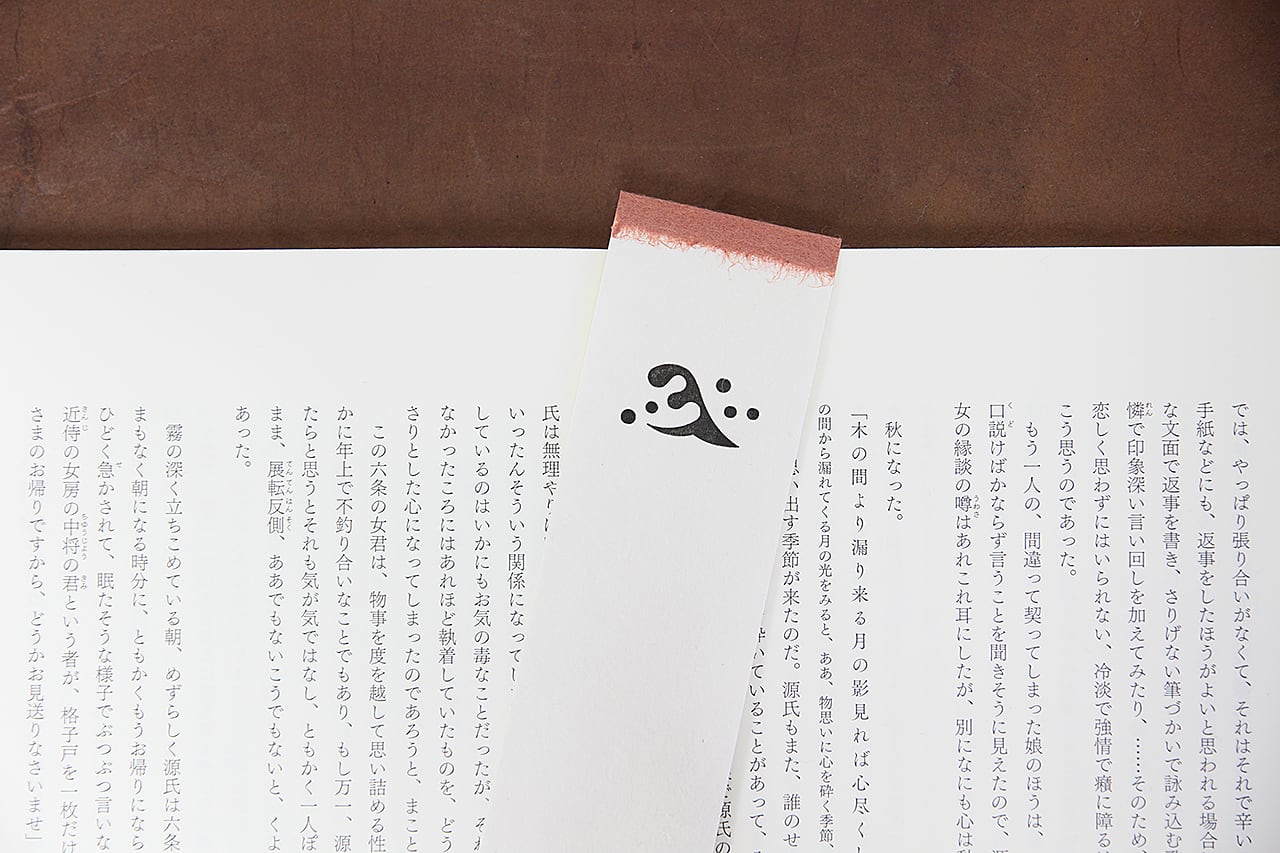 では、やっぱり張り合いがなくて、それはそれで辛い
手紙などにも、返事をしたほうがよいと思われる場合
な文面で返事を書き、さりげない筆づかいで詠み込む
憐で印象深い言い回しを加えてみたり、……そのため、
恋しく思わずにはいられない、冷淡で強情で癪に障る
こう思うのであった。
もう一人の、間違って契ってしまった娘のほうは、
口説けばかならず言うことを聞きそうに見えたので、
女の縁談の噂はあれこれ耳にしたが、別になにも心は
秋になった。
「木の間より漏り来る月の影見れば心尽く
の間から漏れてくる月の光をみると、ああ、物思いに心を砕く季節、
出す季節が来たのだ。源氏もまた、誰のせ
いていることがあって、
源氏の
氏は無理や
いったんそういう関係になってし
しているのはいかにもお気の毒なことだったが、そ
なかったころにはあれほど執着していたものを、どう
さりとした心になってしまったのであろうと、まこと
この六条の女君は、物事を度を越して思い詰める性
かに年上で不釣り合いなことでもあり、もし万一、源
たらと思うとそれも気が気ではなし、ともかく一人ぽ
まま、展転反側、ああでもないこうでもないと、くよ
あった。
霧の深く立ちこめている朝、めずらしく源氏は六条
まもなく朝になる時分に、ともかくもうお帰りになら
ひどく急かされて、眠たそうな様子でぶつぶつ言いな
近侍の女房の中将の君という者が、格子戸を一枚だけ
さまのお帰りですから、どうかお見送りなさいませ」